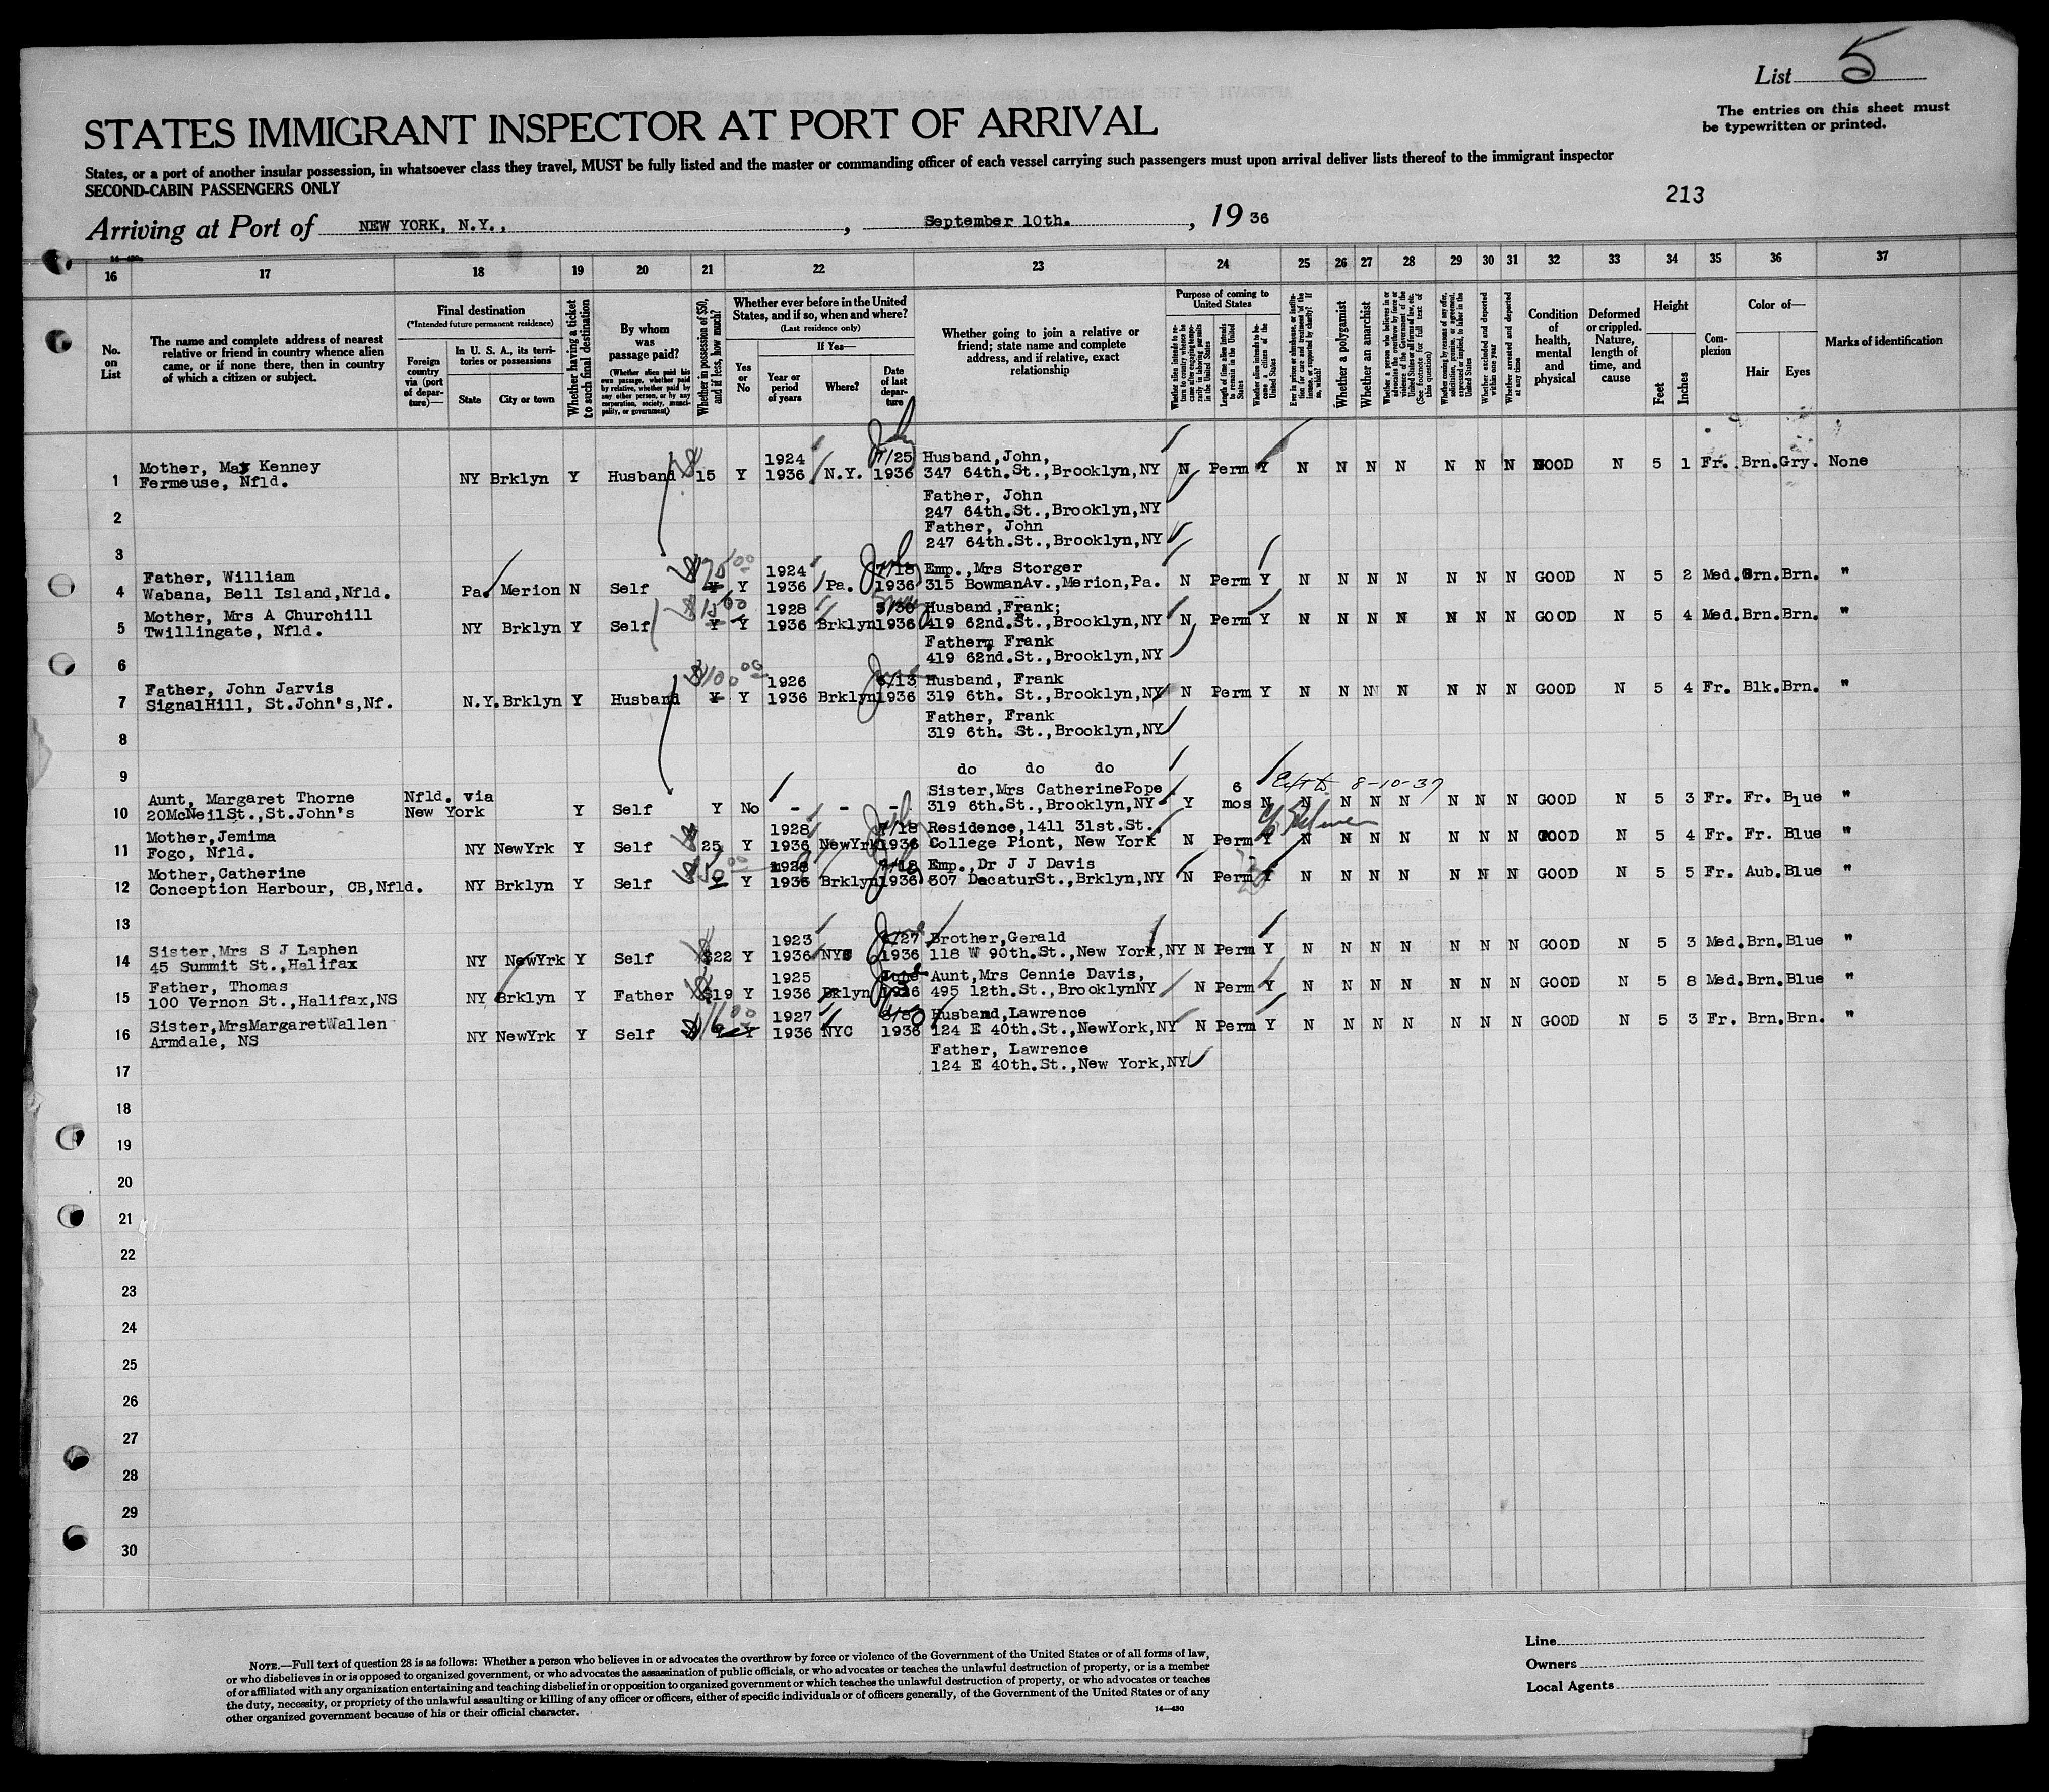 List 5
The entries on this sheet must
be typewritten or printed.
STATES IMMIGRANT INSPECTOR AT PORT OF ARRIVAL
States, or a port of another insular possession, in whatsoever class they travel, MUST be fully listed and the master or commanding officer of each vessel carrying such passengers must upon arrival deliver lists thereof to the immigrant inspector
SECOND-CABIN PASSENGERS ONLY
213
Arriving at Port of NEW YORK, N.Y., , September 10th. , 19 36
16 17 18 19 20 21 22 23 24 25 26 27 28 29 30 31 32 33 34 35 36 37
No. on List
The name and complete address of nearest relative or friend in country whence alien came, or if none there, then in country of which a citizen or subject.
Final destination
(*Intended future permanent residence)
Foreign country via (port of departure)—
In U. S. A., its territories or possessions
State
City or town
Whether having a ticket to such final destination
By whom was passage paid?
(Whether alien paid his own passage, whether paid by relative, whether paid by any other person, or by any corporation, society, municipality, or government)
Whether in possession of $50, and if less, how much?
Whether ever before in the United States, and if so, when and where?
(Last residence only)
Yes or No
If Yes—
Year or period of years
Where?
Date of last departure
Whether going to join a relative or friend; state name and complete address, and if relative, exact relationship
Purpose of coming to United States
Length of time alien intends to remain in the United States
Whether alien intends to become a citizen of the United States
Whether a polygamist
Whether an anarchist
Whether excluded and deported within one year
Whether arrested and deported at any time
Condition of health, mental and physical
Deformed or crippled. Nature, length of time, and cause
Height
Feet
Inches
Complexion
Color of—
Hair
Eyes
Marks of identification
1 Mother, May Kenney NY Brklyn Y Husband $ 15 Y 1924 N.Y. 7/25 Husband, John, N Perm Y N N N N N N N GOOD N 5 1 Fr. Brn. Gry. None
Fermeuse, Nfld. 1936 1936 347 64th.St.,Brooklyn,NY
2 Father, John
247 64th.St.,Brooklyn,NY
3 Father, John
247 64th.St.,Brooklyn,NY
4 Father, William Pa. Merion N Self Y Y 1924 Pa. 7/18 Emp.,Mrs Storger N Perm Y N N N N N N N GOOD N 5 2 Med. Brn. Brn. "
Wabana, Bell Island,Nfld. 1936 1936 315 BowmanAv.,Merion,Pa.
5 Mother, Mrs A Churchill NY Brklyn Y Self Y Y 1928 Brklyn 5/30 Husband,Frank; N Perm Y N N N N N N N GOOD N 5 4 Med. Brn. Brn. "
Twillingate, Nfld. 1936 1936 419 62nd.St.,Brooklyn,NY
6 Father, Frank
419 62nd.St.,Brooklyn,NY
7 Father, John Jarvis N.Y. Brklyn Y Husband $100 00 Y Y 1926 Brklyn 6/13 Husband, Frank N Perm Y N N N N N N N GOOD N 5 4 Fr. Blk. Brn. "
SignalHill, St.John's,Nf. 1936 1936 319 6th. St.,Brooklyn,NY
8 Father, Frank
319 6th. St.,Brooklyn,NY
9 do do do
10 Aunt, Margaret Thorne Nfld. via Y Self Y No - - - Sister,Mrs CatherinePope Y 6 mos N N N N N N N N GOOD N 5 3 Fr. Fr. Blue "
20McNeilSt.,St.John's New York 319 6th.St.,Brooklyn,NY
8-10-37
11 Mother,Jemima NY NewYrk Y Self $ 25 Y 1928 NewYrk 7/18 Residence,1411 31st.St., N Perm Y N N N N N N N GOOD N 5 4 Fr. Fr. Blue "
Fogo, Nfld. 1936 1936 College Piont, New York
12 Mother,Catherine NY Brklyn Y Self Y Y 1928 Brklyn 7/18 Emp.,Dr J J Davis N Perm Y N N N N N N N GOOD N 5 5 Fr. Aub. Blue "
Conception Harbour, CB,Nfld. 1936 1936 507 DecaturSt.,Brklyn,NY
13
14 Sister,Mrs S J Laphen NY NewYrk Y Self $22 Y 1923 NYC 6/27 Brother,Gerald N Perm Y N N N N N N N GOOD N 5 3 Med. Brn. Blue "
45 Summit St.,Halifax 1936 1936 118 W 90th.St.,New York,NY
15 Father, Thomas NY Brklyn Y Father $19 Y 1925 Bklyn June Aunt,Mrs Cennie Davis, N Perm Y N N N N N N N GOOD N 5 8 Med. Brn. Blue "
100 Vernon St.,Halifax,NS 1936 1936 495 12th.St.,BrooklynNY
16 Sister,MrsMargaretWallen NY NewYrk Y Self Y 1927 NYC Husband,Lawrence N Perm Y N N N N N N N GOOD N 5 3 Fr. Brn. Brn. "
Armdale, NS 1936 1936 124 E 40th.St.,NewYork,NY
17 Father, Lawrence
124 E 40th.St.,New York,NY
18
19
20
21
22
23
24
25
26
27
28
29
30
NOTE.—Full text of question 28 is as follows: Whether a person who believes in or advocates the overthrow by force or violence of the Government of the United States or of all forms of law,
or who disbelieves in or is opposed to organized government, or who advocates the assassination of public officials, or who advocates or teaches the unlawful destruction of property, or is a member
of or affiliated with any organization entertaining and teaching disbelief in or opposition to organized government or which teaches the unlawful destruction of property, or who advocates or teaches
the duty, necessity, or propriety of the unlawful assaulting or killing of any officer or officers, either of specific individuals or of officers generally, of the Government of the United States or of any
other organized government because of his or their official character.
14—430
Line
Owners
Local Agents